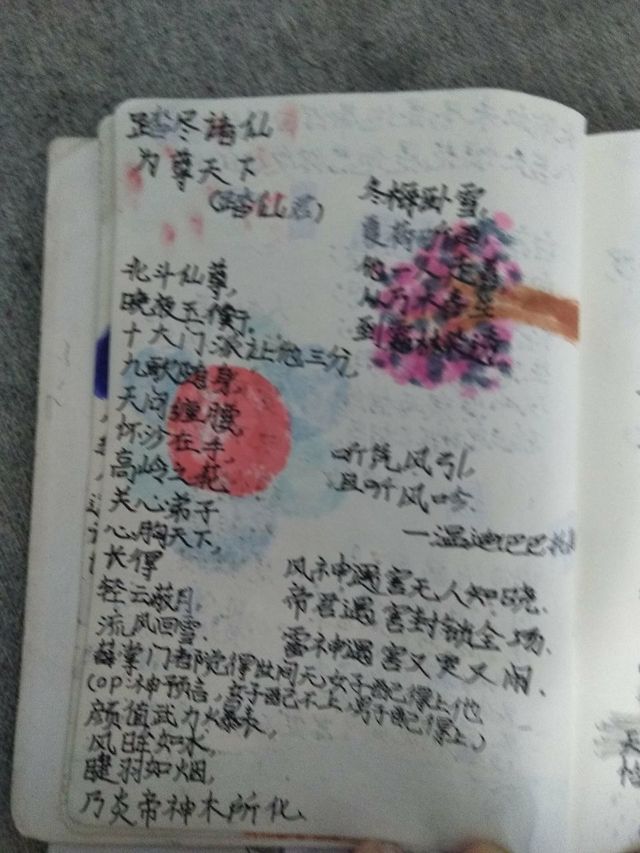 踏尽诸仙
为尊天下
(踏仙君)
北斗仙尊,
晚夜玉衡,
十大门派让他三分,
九歌随身,
天问缠腰,
怀沙在手,
高岭之花
关心弟子
心胸天下,
长得
轻云蔽月,
流风回雪.
薛掌门都觉得世间无女子配得上他
(op:神预言,女子配不上,男子配得上,)
颜值武力大暴表,
风眸如水,
睫羽如烟,
乃炎帝神木所化.
冬梅卧雪,
他一人走着
从万人
到
听凭风引,
且听风吟.
一温迪巴巴
风神遇害无人知晓、
帝君遇害封锁全场、
雷神遇害又哭又闹、